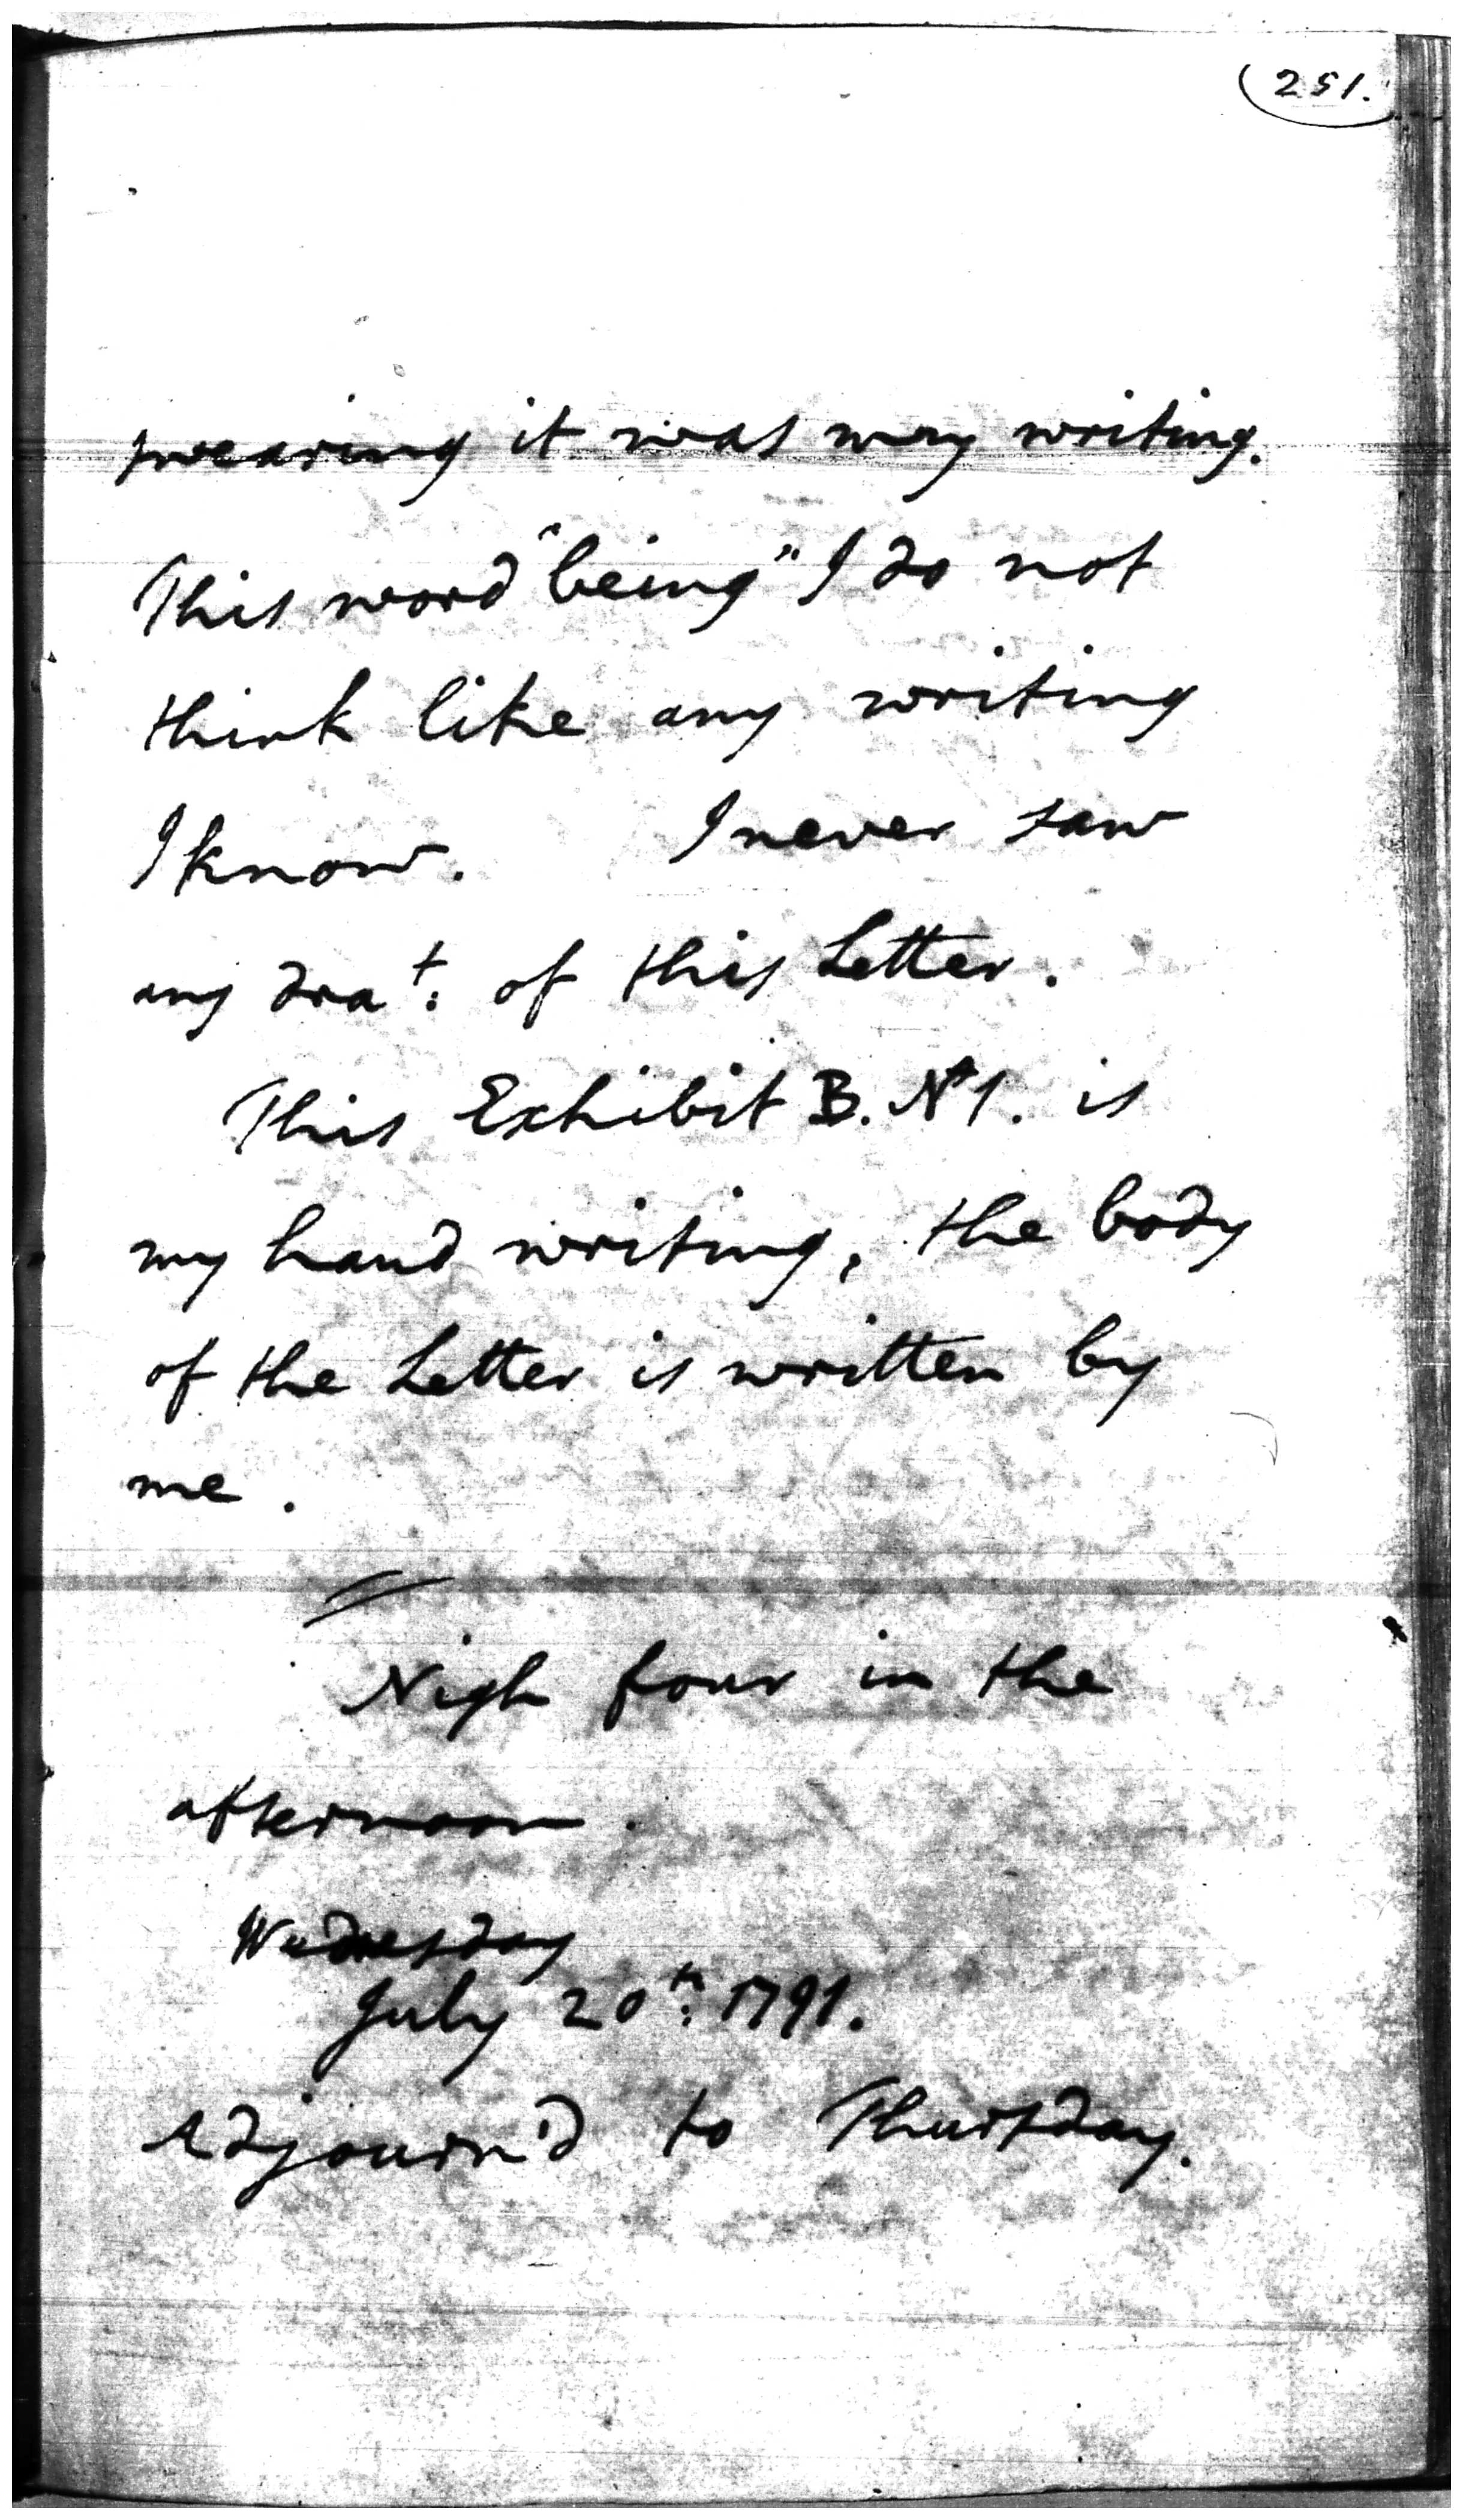 251.
swearing it was my writing.
This word "being" I do not
think like any writing
I know. I never saw
any dra^t: of this Letter.
This Exhibit B. N^o 1. is
my hand writing, the body
of the Letter is written by
me.
Nigh four in the
afternoon.
Wednesday
July 20^th: 1791.
Adjourn'd to Thursday.